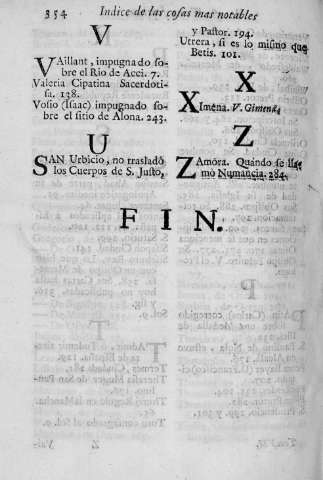 354 Indice de las cosas mas notables
V
VAillant, impugnado so-
bre el Rio de Acci. 7.
Valeria Cipatina Sacerdoti-
sa. 128.
Vosio (Isaac) impugnado so-
bre el sitio de Alona. 243.
U
SAN Urbicio, no trasladó
los Cuerpos de S. Justo,
y Pastor. 194.
Utrera, si es lo mismo que
Betis. 101.
X
XImena. V. Gimena.
Z
ZAmora. Quándo se lla-
mó Numancia. 284.
FIN.